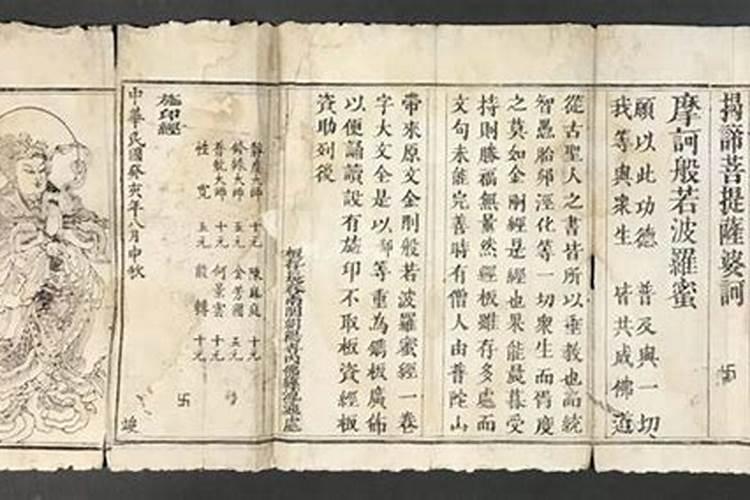 揭諦菩提薩婆訶
卍
摩訶般若波羅蜜
願以此功德 普及與一切
我等與衆生 皆共成佛道
從古聖人之書皆所以垂教也而統
智愚胎卵溼化等一切衆生而胥度
之莫如金剛經是經也果能晨暮受
持則勝福無量然經板雖存多處而
文句未能完善時有僧人由普陀山
帶來原文金剛般若波羅蜜經一卷
字大文全是以 等重為鐫板廣佈
以便誦讀設有施印不取板資經板
資助列後
施印經
大師 十元 陳 庭 十元
大師 五元 金芳國 五元
普 大師 十元 何景雲 十元
性寬 五元 殷 轉 十元
卍
中華民國癸亥年八月中秋
竣